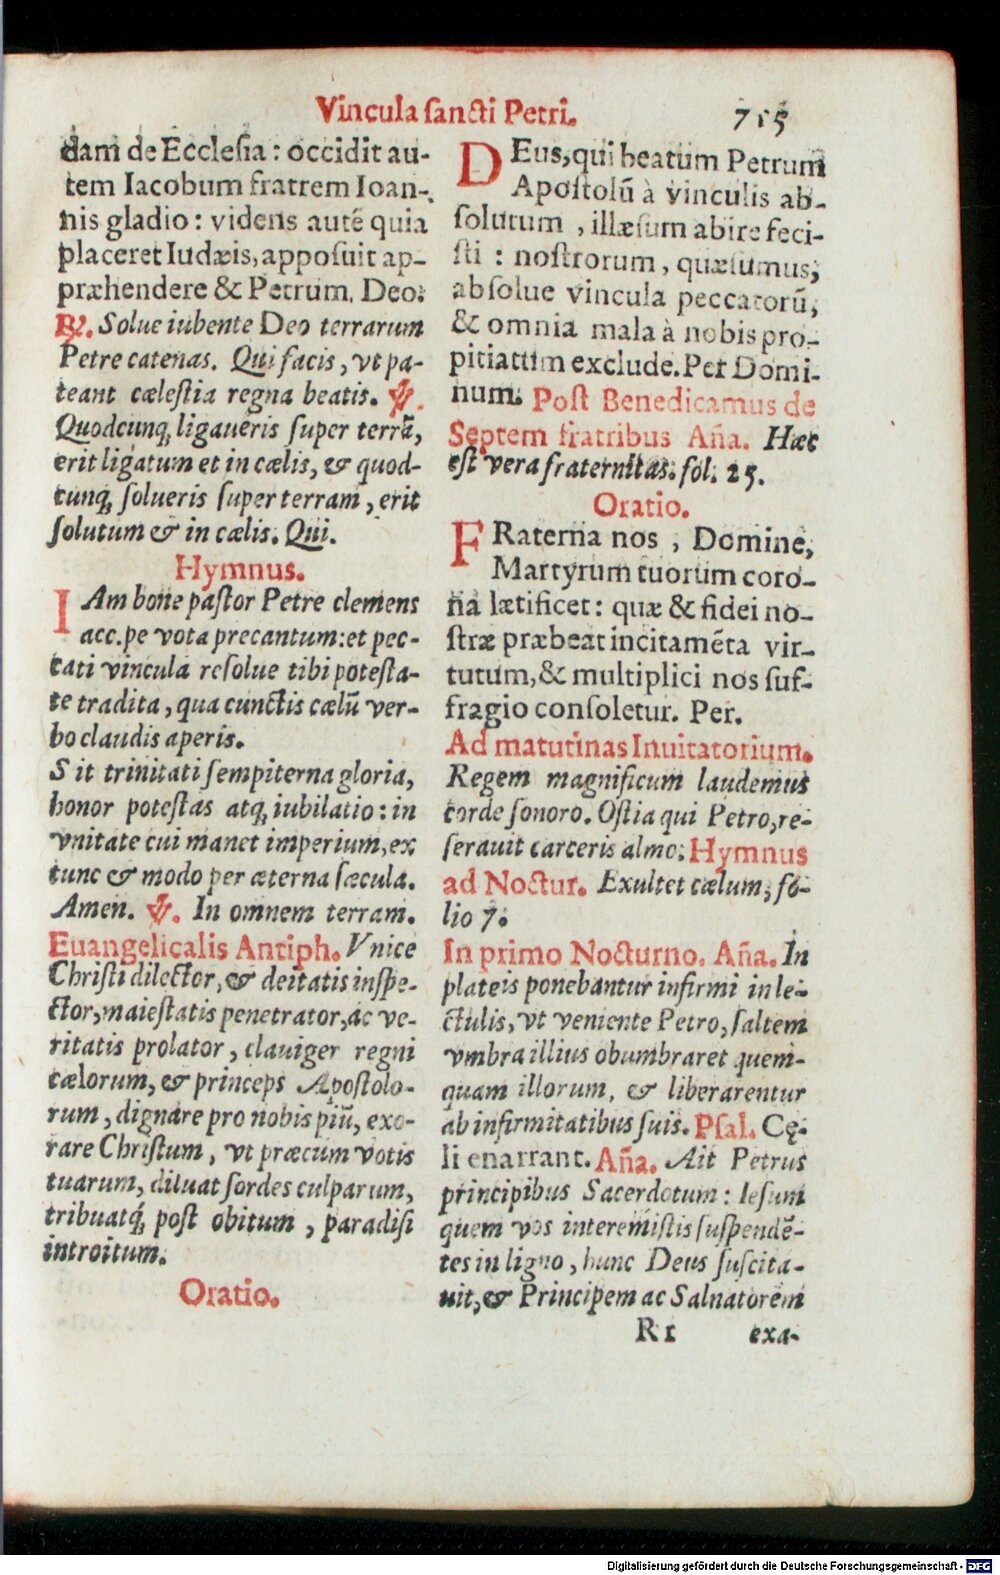 Vincula sancti Petri. 715
dam de Ecclesia : occidit au-
tem Iacobum fratrem Ioan-
nis gladio : videns autē quia
placeret Iudæis, apposuit ap-
præhendere & Petrum. Deo.
℟. Solue iubente Deo terrarum
Petre catenas. Qui facis, vt pa-
teant cælestia regna beatis. ℣.
Quodcunq; ligaueris super terrā,
erit ligatum et in cælis, & quod-
cunq; solueris super terram, erit
solutum & in cælis. Qui.
Hymnus.
IAm bone pastor Petre clemens
accipe vota precantum: et pec-
cati vincula resolue tibi potesta-
te tradita, qua cunctis cælū ver-
bo claudis aperis.
Sit trinitati sempiterna gloria,
honor potestas atq; iubilatio: in
vnitate cui manet imperium, ex
tunc & modo per æterna sæcula.
Amen. ℣. In omnem terram.
Euangelicalis Antiph. Vnice
Christi dilector, & deitatis inspe-
ctor, maiestatis penetrator, ac ve-
ritatis prolator, clauiger regni
cælorum, & princeps Apostolo-
rum, dignare pro nobis piū, exo-
rare Christum, vt præcum votis
tuarum, diluat sordes culparum,
tribuatq́; post obitum, paradisi
introitum.
Oratio.
DEus, qui beatum Petrum
Apostolū à vinculis ab-
solutum, illæsum abire feci-
sti : nostrorum, quæsumus,
absolue vincula peccatorū,
& omnia mala à nobis pro-
pitiatum exclude. Per Domi-
num. Post Benedicamus de
Septem fratribus Aña. Hæc
est vera fraternitas. fol. 25.
Oratio.
FRaterna nos, Domine,
Martyrum tuorum coro-
na lætificet: quæ & fidei no-
stræ præbeat incitamēta vir-
tutum, & multiplici nos suf-
fragio consoletur. Per.
Ad matutinas Inuitatorium.
Regem magnificum laudemus
corde sonoro. Ostia qui Petro, re-
serauit carceris almo. Hymnus
ad Noctur. Exultet cælum, fo-
lio 7.
In primo Nocturno. Aña. In
plateis ponebantur infirmi in le-
ctulis, vt veniente Petro, saltem
vmbra illius obumbraret quem-
quam illorum, & liberarentur
ab infirmitatibus suis. Psal. Cę-
li enarrant. Aña. Ait Petrus
principibus Sacerdotum : Iesum
quem vos interemistis suspendē-
tes in ligno, hunc Deus suscita-
uit, & Principem ac Saluatorem
Rr exa-
Digitalisierung gefördert durch die Deutsche Forschungsgemeinschaft - DFG